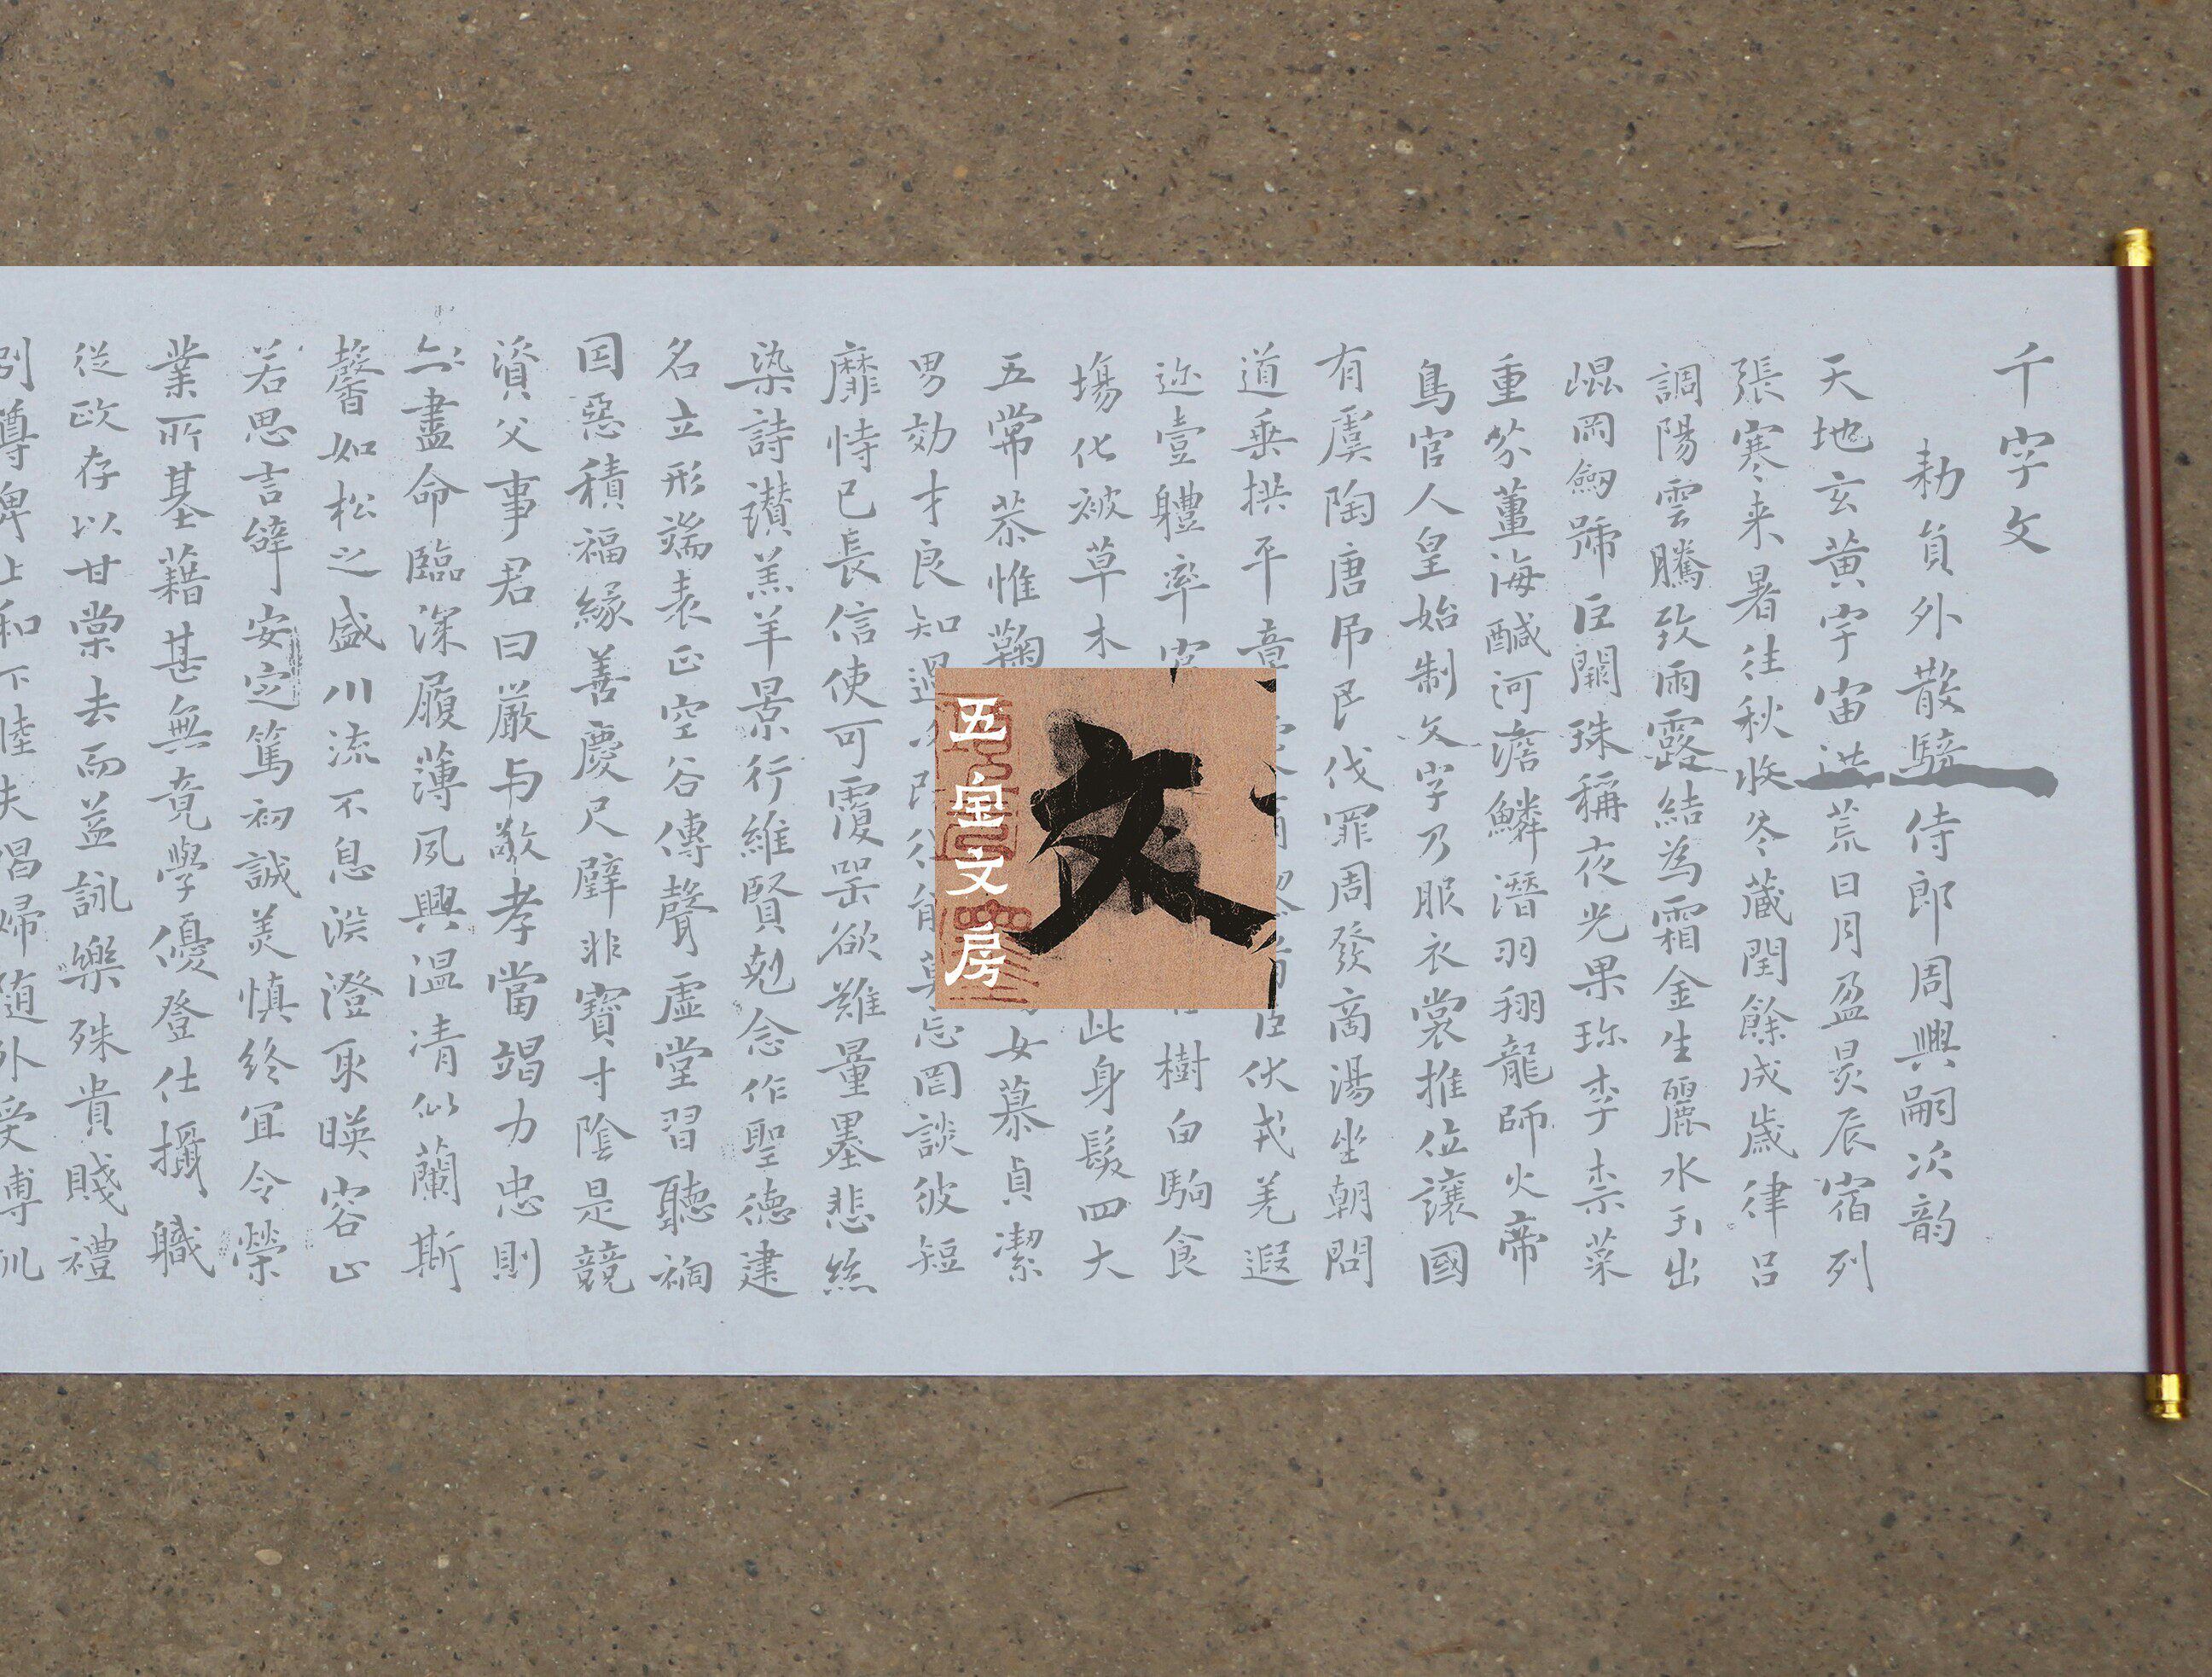 千字文
勑員外散騎侍郎周興嗣次韵
天地玄黃宇宙洪荒日月盈昃辰宿列
張寒来暑往秋收冬藏閏餘成歲律呂
調陽雲騰致雨露結為霜金生麗水玉出
崐岡劒號巨闕珠稱夜光果珎李柰菜
重芥薑海醎河澹鱗潛羽翔龍師火帝
鳥官人皇始制文字乃服衣裳推位讓國
有虞陶唐吊民伐罪周發商湯坐朝問
道垂拱平章臣伏戎羌遐
迩壹體率樹白駒食
場化被草木此身髮四大
五常恭惟鞠女慕貞潔
男効才良知過忘罔談彼短
靡恃己長信使可覆器欲難量墨悲絲
染詩讚羔羊景行維賢剋念作聖德建
名立形端表正空谷傳聲虛堂習聽禍
因惡積福緣善慶尺璧非寶寸陰是競
資父事君曰嚴与敬孝當竭力忠則
盡命臨深履薄夙興温凊似蘭斯
馨如松之盛川流不息淵澄取暎容止
若思言辭安定篤初誠美慎終宜令榮
業所基藉甚無竟學優登仕攝職
從政存以甘棠去而益詠樂殊貴賤禮
別尊卑上和下睦夫唱婦随外受傅訓
五金文房
文